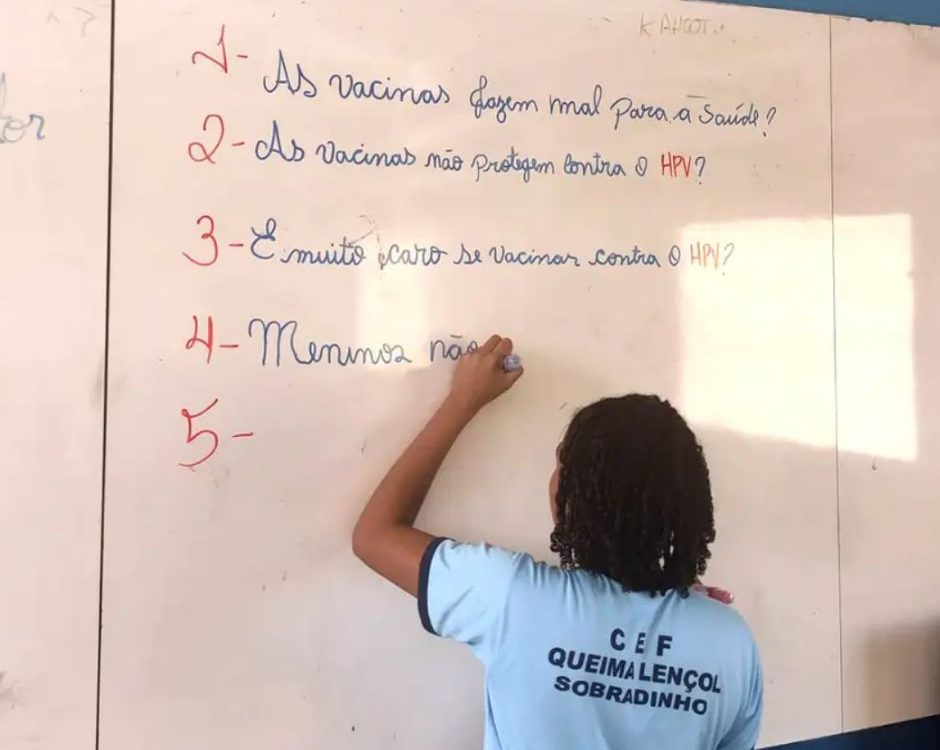 KAHOOT
1- As vacinas fazem mal para a saúde?
2- As vacinas não protegem contra o HPV?
3- É muito caro se vacinar contra o HPV?
4- Meninos não
5-
C E F
QUEIMA LENÇOL
SOBRADINHO